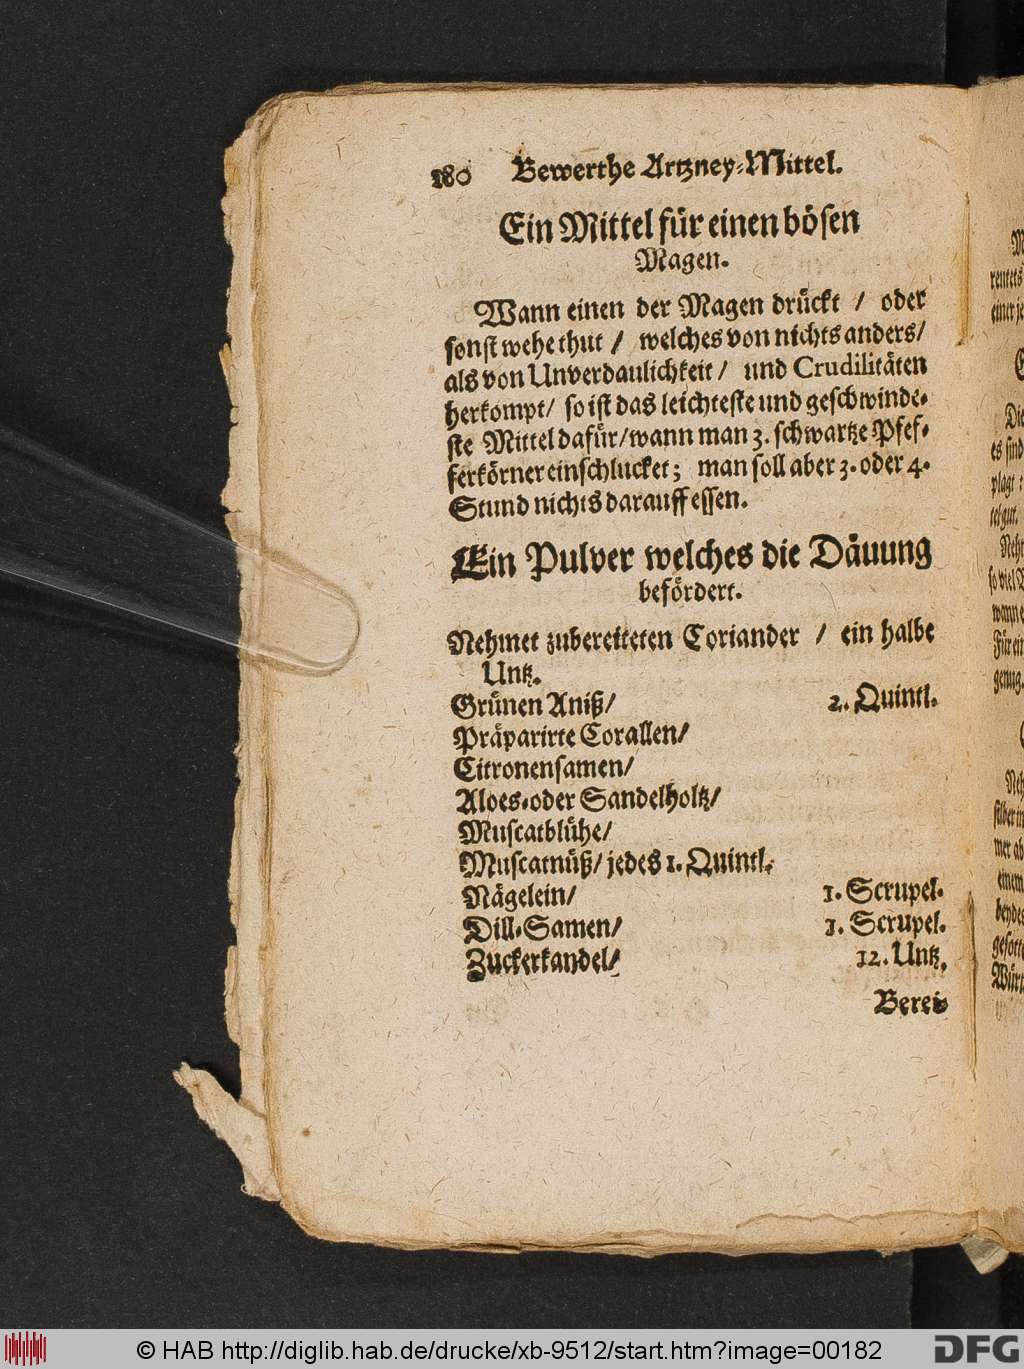 180 Bewerthe Artzney-Mittel.
Ein Mittel für einen bösen
Magen.
Wann einen der Magen drückt / oder
sonst wehe thut / welches von nichts anders/
als von Unverdaulichkeit / und Crudilitäten
herkompt / so ist das leichteste und geschwinde-
ste Mittel dafür / wann man 3. schwartze Pfef-
ferkörner einschlucket; man soll aber 3. oder 4.
Stund nichts darauff essen.
Ein Pulver welches die Däuung
befördert.
Nehmet zubereiteten Coriander / ein halbe
Untz.
Grünen Aniß / 2. Quintl.
Präparirte Corallen /
Citronensamen /
Aloes-oder Sandelholtz /
Muscatblühe /
Muscatnüß / jedes 1. Quintl.
Nägelein / 1. Scrupel.
Dill-Samen / 1. Scrupel.
Zuckerkandel / 12. Untz.
Berei-
© HAB http://diglib.hab.de/drucke/xb-9512/start.htm?image=00182
DFG